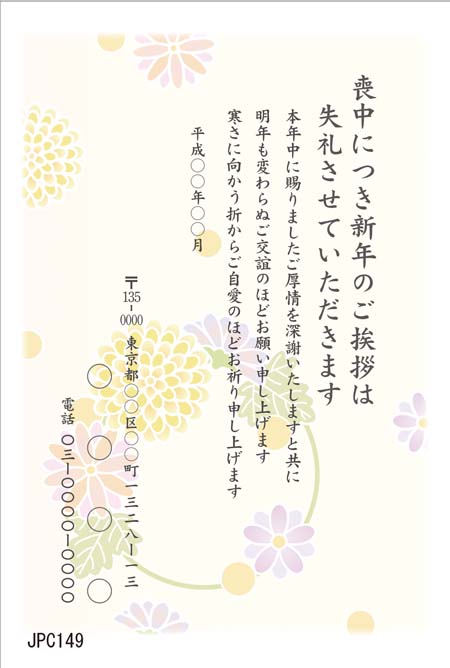 喪中につき新年のご挨拶は
失礼させていただきます
本年中に賜りましたご厚情を深謝いたしますと共に
明年も変わらぬご交誼のほどお願い申し上げます
寒さに向かう折からご自愛のほどお祈り申し上げます
平成〇〇年〇〇月
〒135-0000 東京都〇〇区〇〇町一三二八ー一三
〇〇〇〇
電話 〇三ー〇〇〇〇ー〇〇〇〇
JPC149